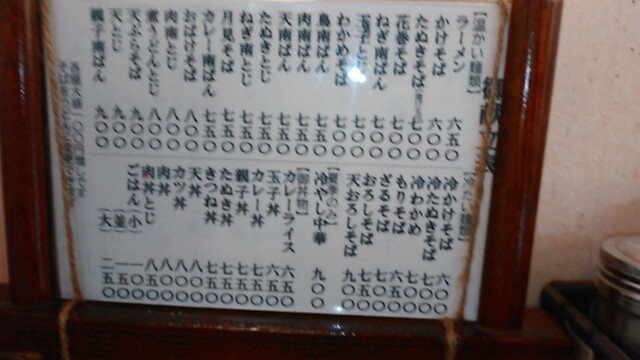 【温かい麺類】
ラーメン 六五〇
かけそば 六〇〇
たぬきそば 七〇〇
花巻そば 七〇〇
ねぎ南ばん 七〇〇
玉子とじ 七〇〇
わかめそば 七〇〇
鳥南ばん 七五〇
肉南ばん 七五〇
天南ばん 七五〇
たぬきとじ 七五〇
ねぎ南とじ 七五〇
月見そば 七五〇
カレー南ばん 七五〇
おばけそば 八〇〇
肉南とじ 八〇〇
煮うどんとじ 八〇〇
天ぷらそば 九〇〇
天とじ 九〇〇
親子南ばん 九〇〇
【冷たい麺類】
冷かけそば
冷たぬきそば 七〇〇
冷わかめ 七〇〇
もりそば 六〇〇
ざるそば
おろしそば
天おろしそば
【夏季のみ】
冷やし中華 九〇〇
【御丼物】
カレーライス 六五〇
玉子丼 六五〇
カレー丼 七五〇
親子丼 七五〇
たぬき丼 七五〇
きつね丼 七五〇
天丼 八〇〇
カツ丼 八〇〇
肉丼 八〇〇
肉丼とじ 八五〇
ごはん (小) 一〇〇
(並) 一五〇
(大) 二〇〇